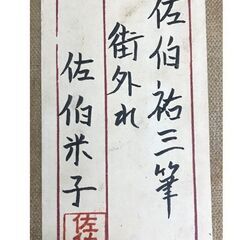 佐伯祐三筆
街外れ
佐伯米子
佐伯